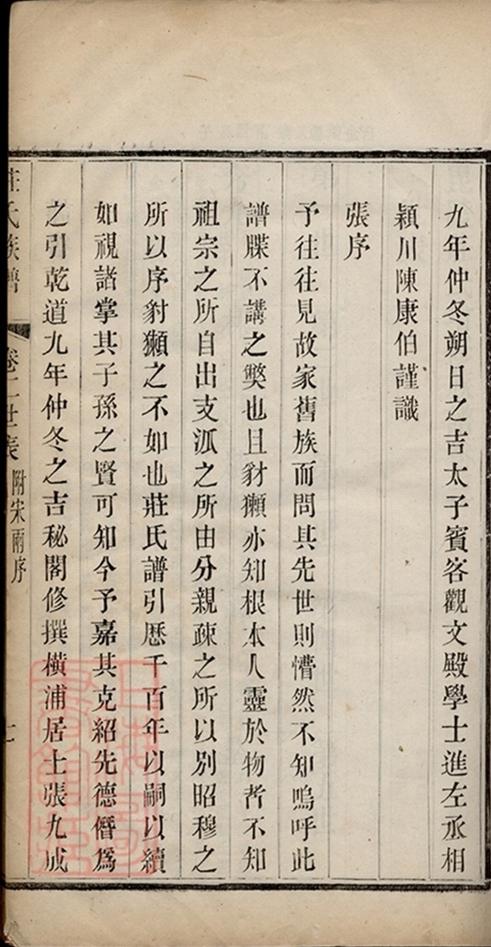 九年仲冬朔日之吉太子賓客觀文殿學士進左丞相
潁川陳康伯謹識
張序
予往往見故家舊族而問其先世則懵然不知嗚呼此
譜牒不講之獘也且豺獺亦知根本人靈於物者不知
祖宗之所自出支泒之所由分親疎之所以別昭穆之
所以序豺獺之不如也莊氏譜引歴千百年以嗣以續
如視諸掌其子孫之賢可知今予嘉其克紹先德僭爲
之引乾道九年仲冬之吉秘閣修撰橫浦居士張九成
莊氏族譜 卷二世表 附宋兩序